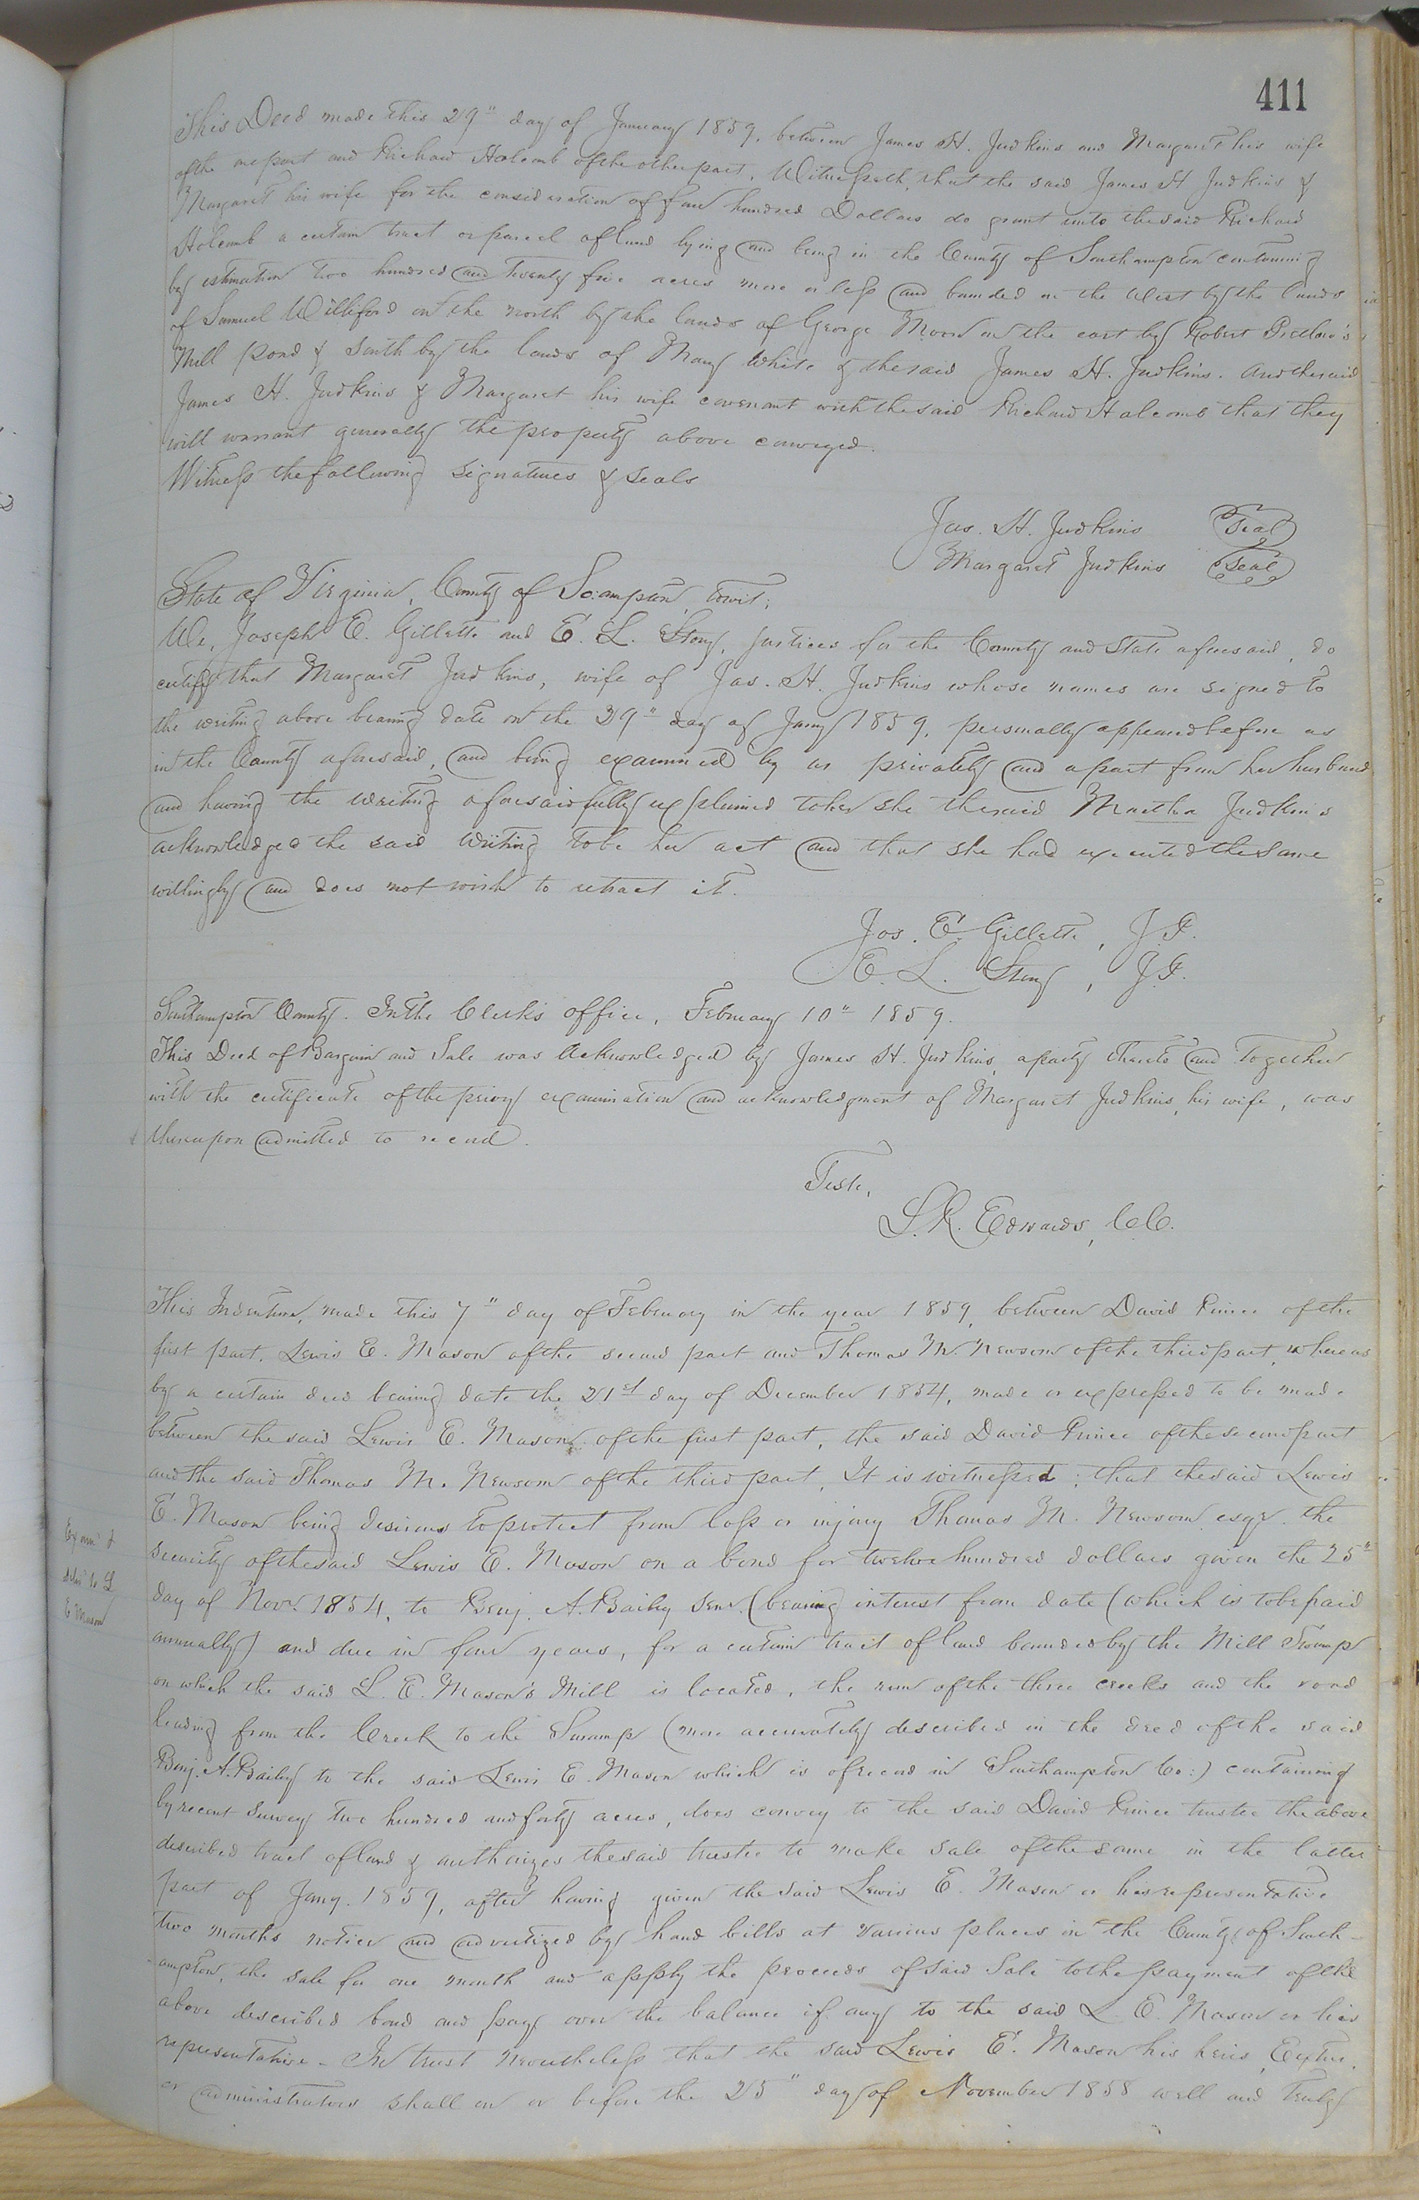 411
This Deed made this 29" day of January 1859, between James H. Judkins and Margaret his wife
of the one part and Richard Holcomb of the other part, Witnesseth, that the said James H Judkins &
Margaret his wife for the consideration of four hundred Dollars do grant unto the said Richard
Holcomb a certain tract or parcel of land lying and being in the County of Southampton containing
by estimation two hundred and twenty five acres more or less and bounded on the West by the lands
of Samuel Williford on the north by the lands of George Moore on the east by Robert Pretlow's
Mill pond & South by the lands of Mary White & the said James H. Judkins. And the said
James H. Judkins & Margaret his wife covenant with the said Richard Holcomb that they
will warrant generally the property above conveyed.
Witness the following signatures & seals
Jas. H. Judkins Seal
Margaret Judkins Seal
State of Virginia, County of So:ampton, towit;
We, Joseph E. Gillette and E. L. Story, Justices for the County and State aforesaid, do
certify that Margaret Judkins, wife of Jas. H. Judkins whose names are signed to
the writing above bearing date on the 29" day of Jany 1859, personally appeared before us
in the County aforesaid, and being examined by us privately and apart from her husband
and having the writing aforesaid fully explained to her she the said Martha Judkins
acknowledged the said Writing to be her act and that she had executed the same
willingly and does not wish to retract it.
Jos. E Gillette, J.P.
E. L. Story, J.P.
Southampton County. In the Clerk's office, February 10" 1859.
This Deed of Bargain and Sale was Acknowledged by James H. Judkins, a party thereto and together
with the certificate of the privy examination and acknowledgment of Margaret Judkins, his wife, was
thereupon admitted to record.
Teste,
L. R. Edwards, C.C.
This Indenture, made this 7" day of February in the year 1859, between David Prince of the
first part, Lewis E. Mason of the second part and Thomas M. Newsom of the third part, whereas
by a certain deed bearing date the 21st day of December 1854, made or expressed to be made
between the said Lewis E. Mason of the first part, the said David Prince of the second part
and the said Thomas M. Newsom of the third part, It is witnessed; that the said Lewis
E. Mason being desirous to protect from loss or injury Thomas M. Newsom esqr. the
security of the said Lewis E. Mason on a bond for twelve hundred dollars given the 25"
Exam'd
delv'd to L
E Mason
day of Novr. 1854, to Benj. A. Bailey Senr. (bearing interest from date (which is to be paid
annually) and due in four years, for a certain tract of land bounded by the Mill Swamp
on which the said L. E. Mason's Mill is located, the run of the three creeks and the road
leading from the Creek to the Swamp (more accurately described in the deed of the said
Benj. A. Bailey to the said Lewis E. Mason which is of record in Southampton Co:) containing
by recent Survey two hundred and forty acres, does convey to the said David Prince trustee the above
described tract of land & authorizes the said trustee to make sale of the same in the latter
part of Jany. 1859, after having given the said Lewis E. Mason or his representative
two months notice and advertized by hand bills at various places in the County of South-
ampton, the sale for one month and apply the proceeds of said Sale to the payment of the
above described bond and pay over the balance if any to the said L E. Mason or his
representative - In trust nevertheless that the said Lewis E. Mason his heirs, Extrs.
or administrators shall on or before the 25" day of November 1858 well and truly